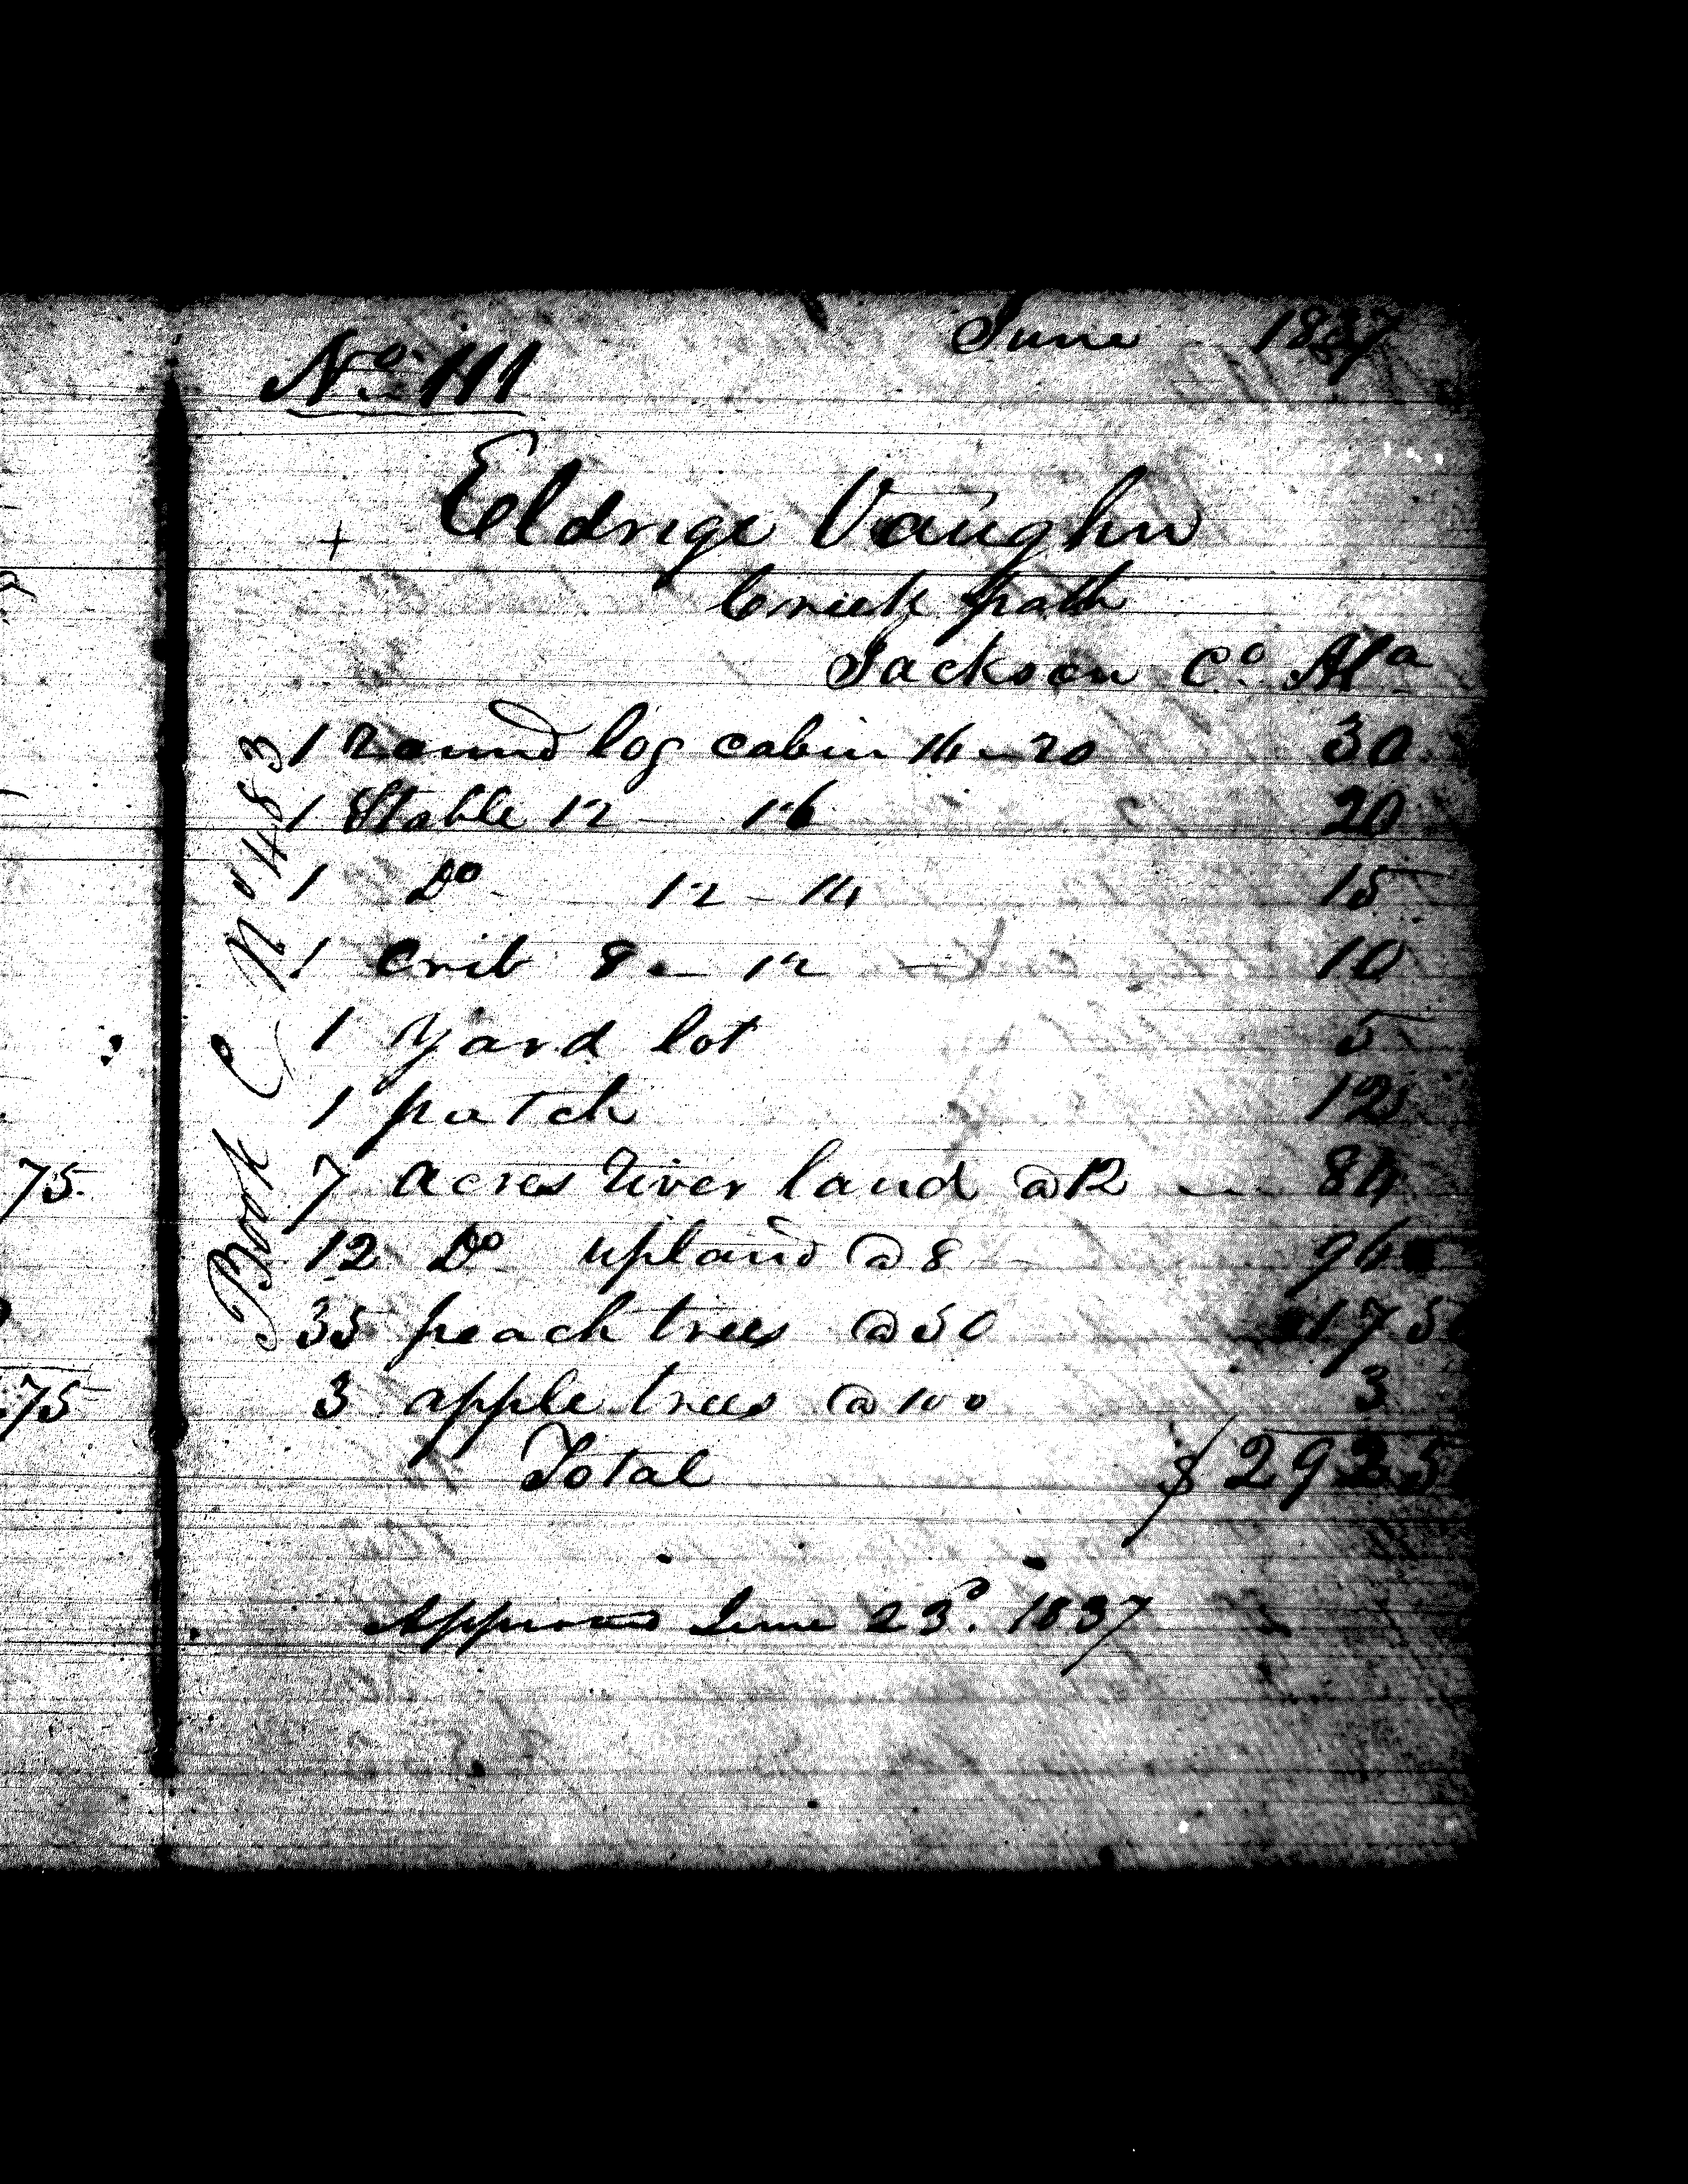 No. 111
June 1837
Eldrige Vaughn
+
Creek path
Jackson Co. Ala
1 Round log cabin 16 - 20 30
1 Stable 12 - 16 20
1 Do 12 - 14 15
1 Crib 8 - 12 - 10
1 Yard lot 5
1 patch 12
7 acres River land @ 12 - 84
12 Do upland @ 8 - 96
35 peach trees @ 50 17 50
3 apple trees @ 100 3
Total $ 292 5
Approved June 23d. 1837
Book C No 483
75
75